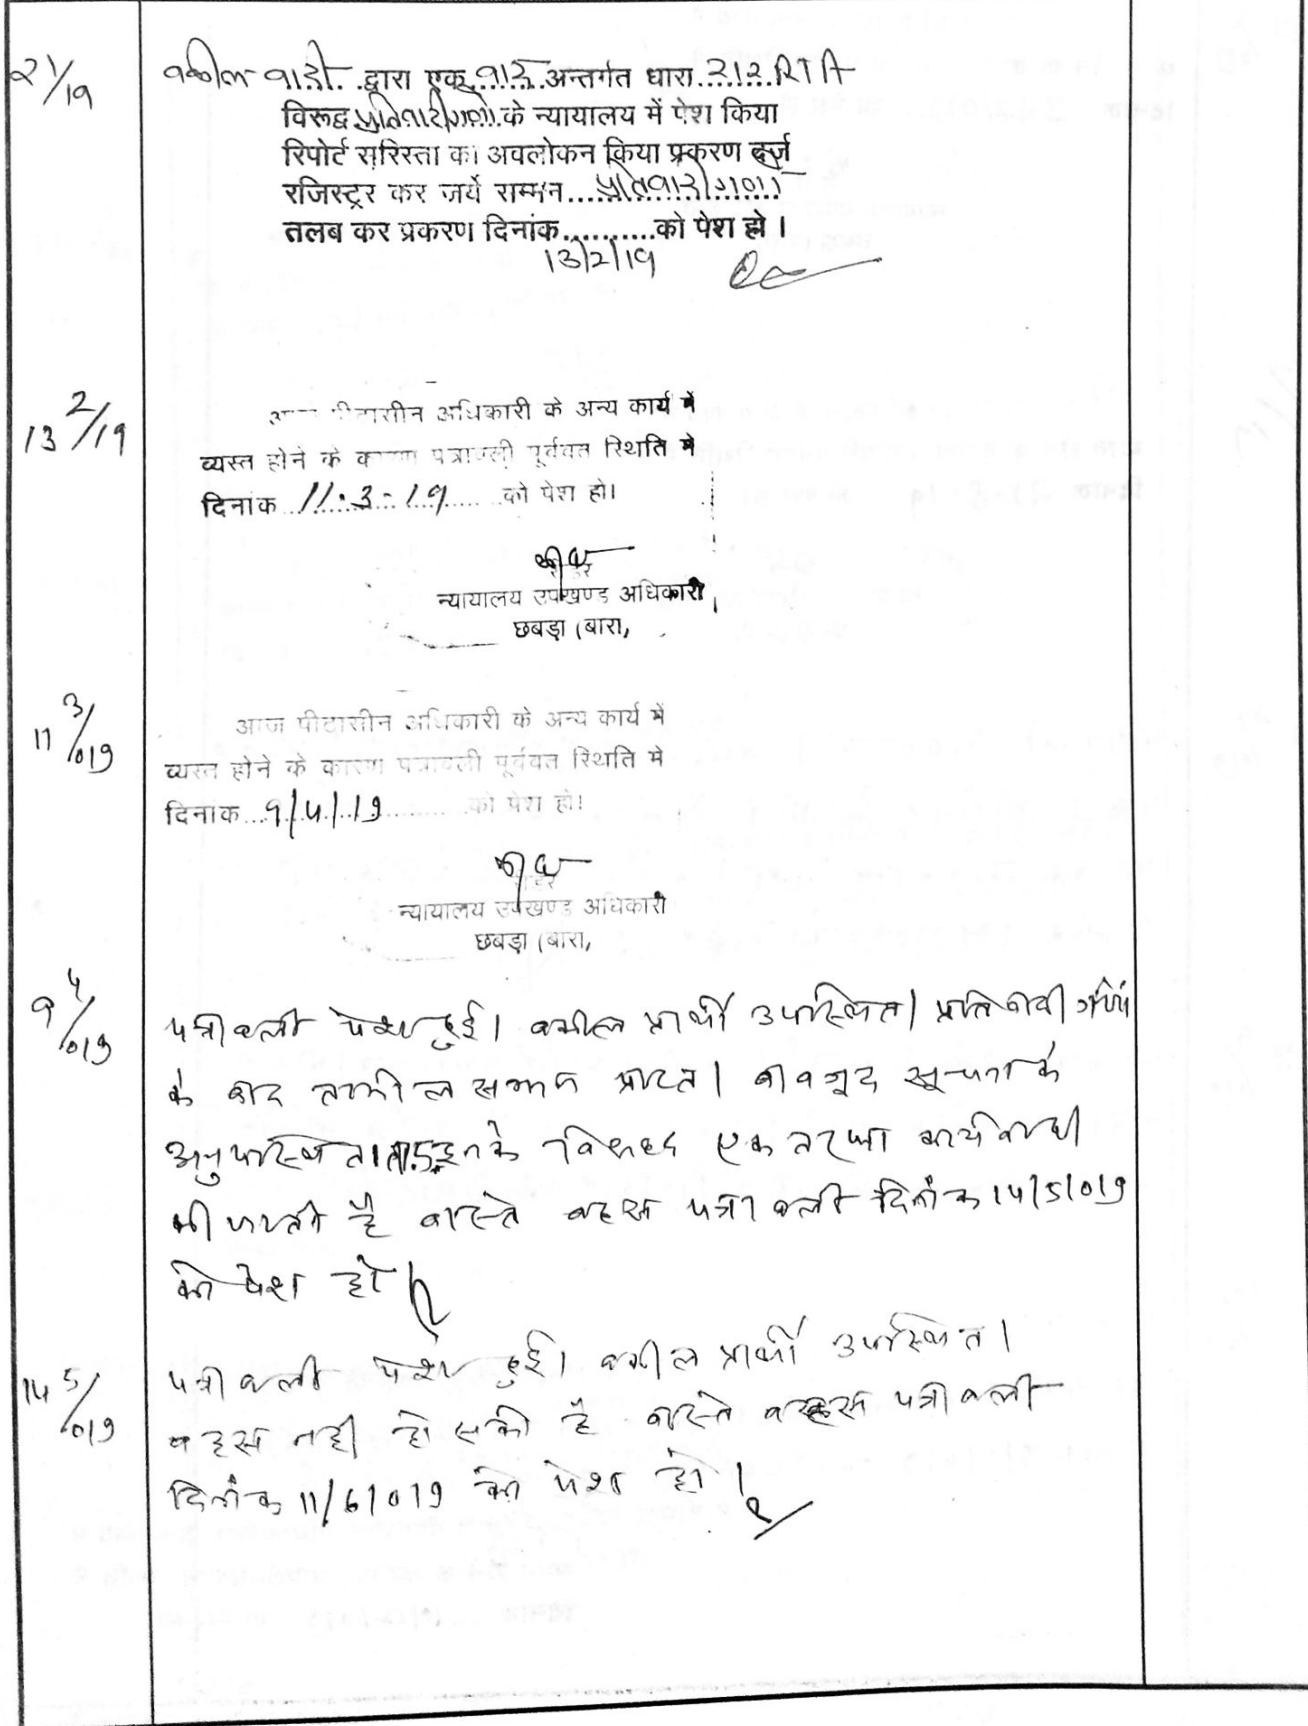 21/1/19
वकील वादी द्वारा एक वाद अन्तर्गत धारा 212 RTA
विरूद्ध प्रतिवादीगणों के न्यायालय में पेश किया
रिपोर्ट सरिस्ता का अवलोकन किया प्रकरण दर्ज
रजिस्ट्रर कर जर्ये सम्मन प्रतिवादीगणों
तलब कर प्रकरण दिनांक..........को पेश हो।
13/2/19
13 2/19
पीठासीन अधिकारी के अन्य कार्य में
व्यस्त होने के कारण पत्रावली पूर्ववत स्थिति मे
दिनांक 11.3-19 को पेश हो।
रीडर
न्यायालय उपखण्ड अधिकारी
छबड़ा (बारा,
11 3/019
आज पीठासीन अधिकारी के अन्य कार्य में
व्यस्त होने के कारण पत्रावली पूर्ववत स्थिति मे
दिनांक 9/4/19 को पेश हो।
रीडर
न्यायालय उपखण्ड अधिकारी
छबड़ा (बारा,
9 4/019
पत्रावली पेश हुई। वकील प्रार्थी उपस्थित। प्रतिवादी
के बाद तामील सम्मन प्राप्त। बावजूद सूचना के
अनुपस्थित। इनके विरूध्द एक तरफा कार्यवाही
की जाती है वास्ते बहस पत्रावली दिनांक 14/5/019
को पेश हो।
14 5/019
पत्रावली पेश हुई। वकील प्रार्थी उपस्थित।
बहस नही हो सकी है वास्ते बहस पत्रावली
दिनांक 11/6/019 को पेश हो।